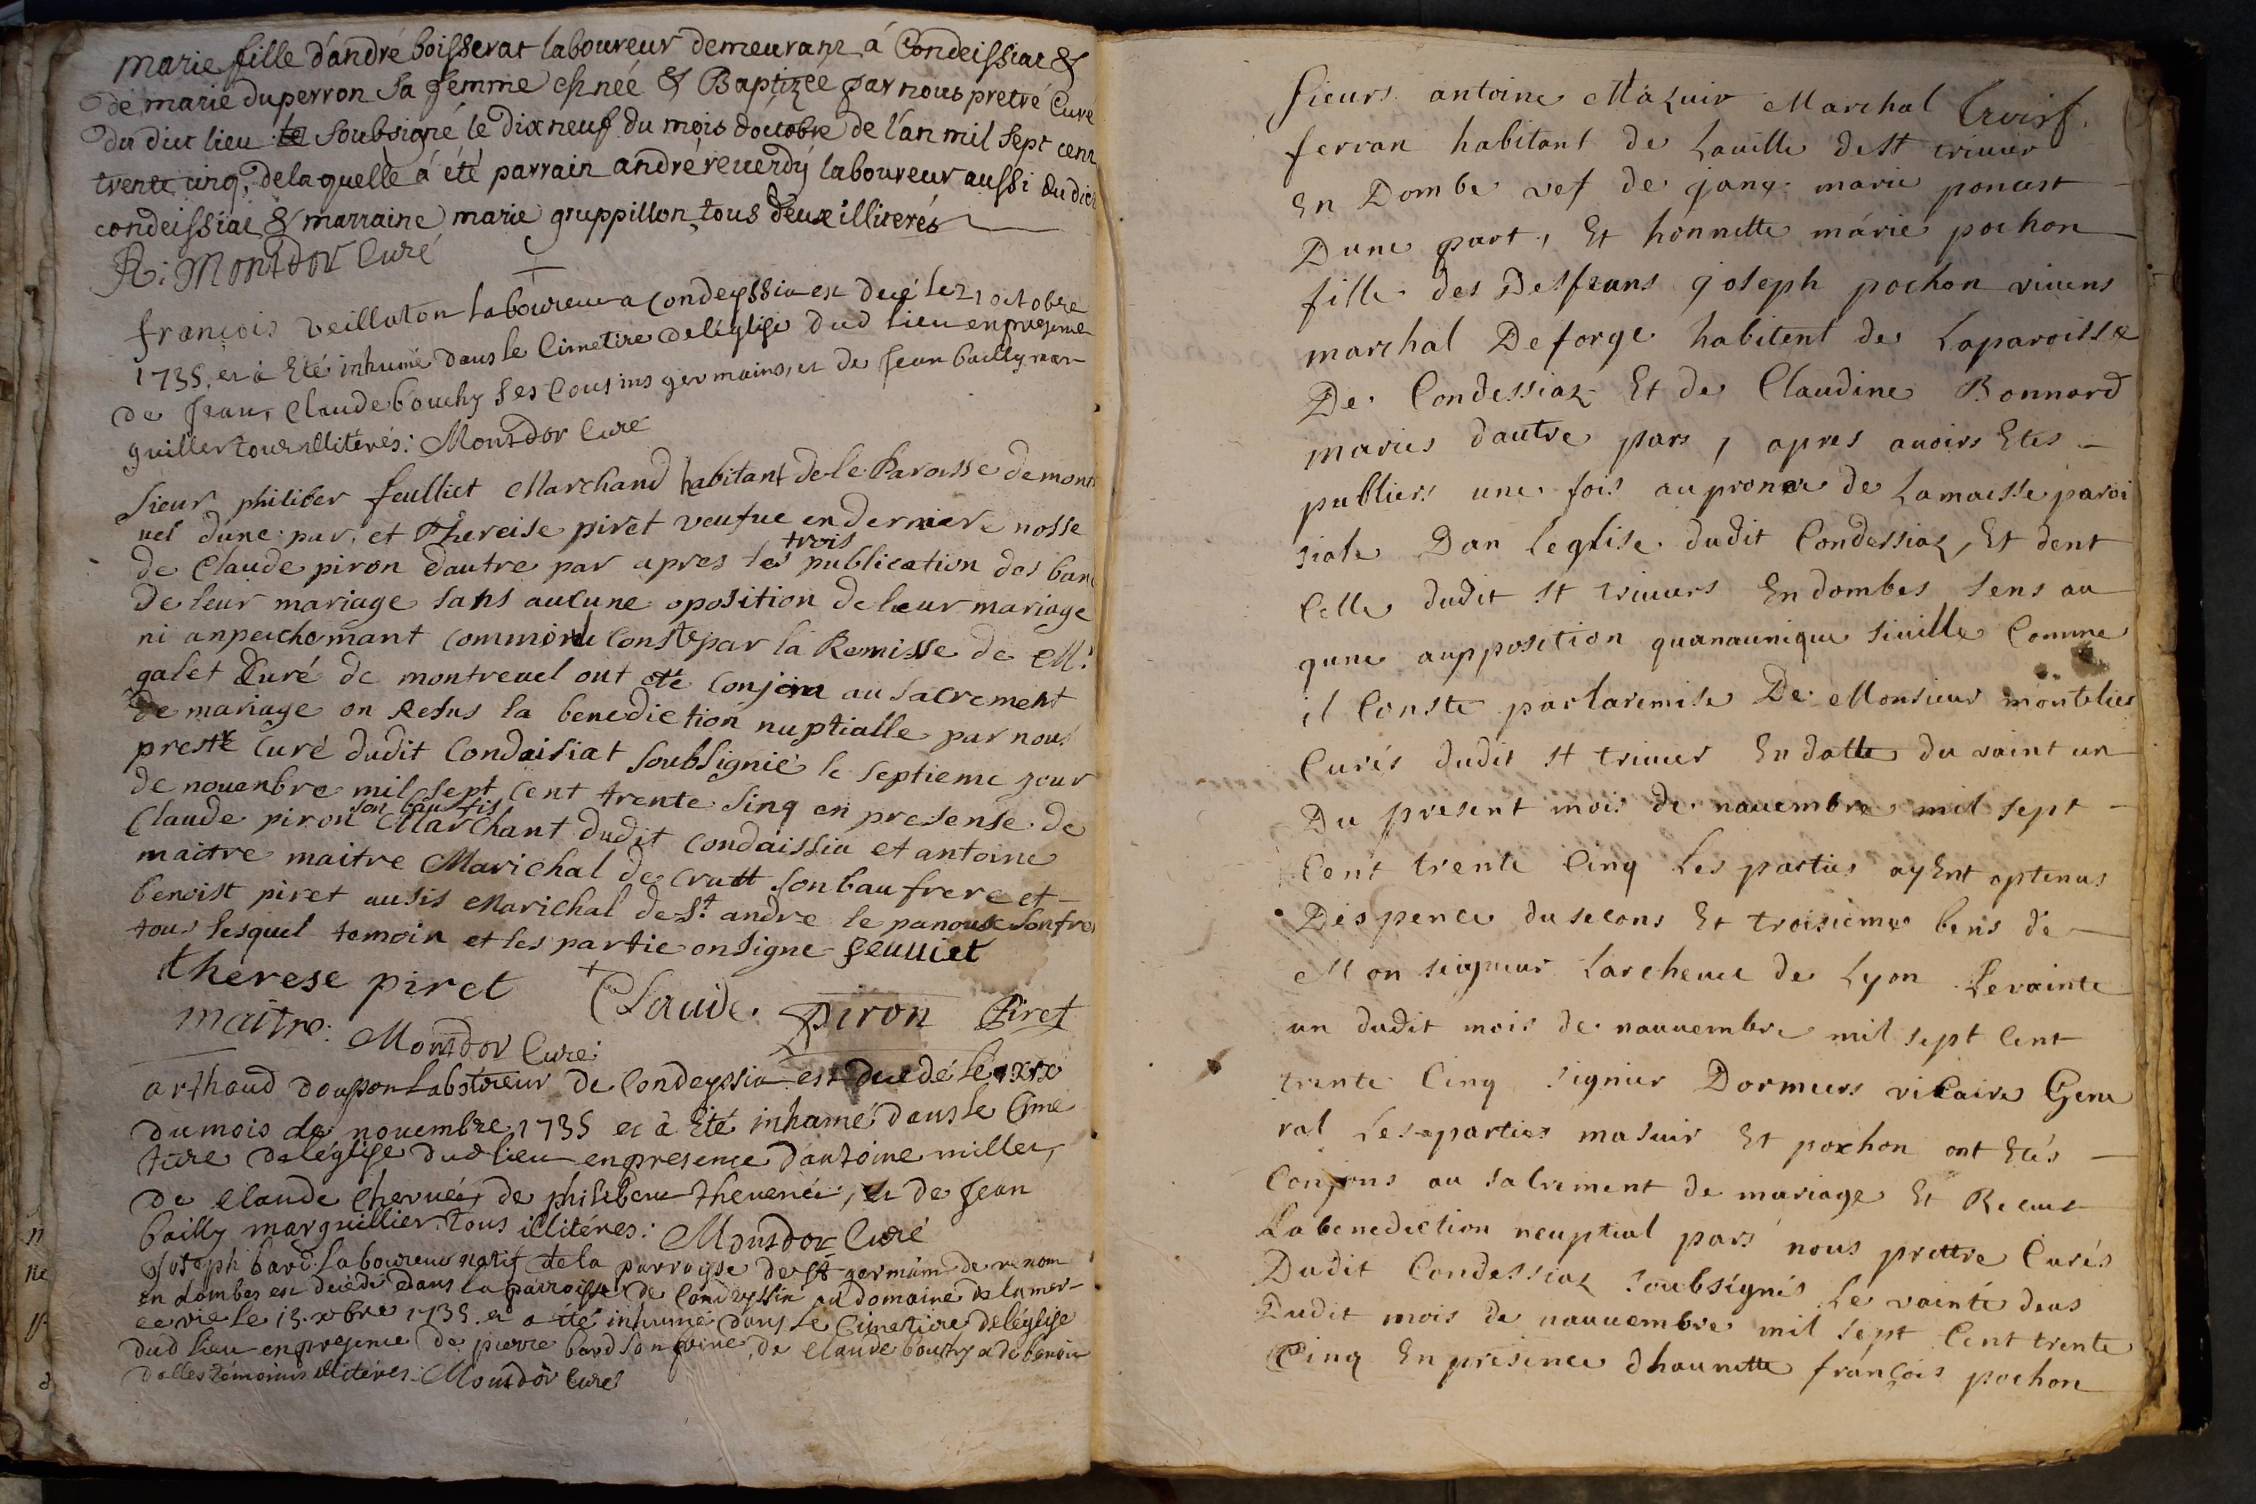 marie fille d'andré boisserat laboureur demeurant á Condeissiat &
de marie duperron sa femme est née & Baptizée par nous pretre Curé
du dict lieu soubsigné le dixneuf du mois doctobre de l'an mil sept cent
trente cinq, de laquelle á été parrain andré reverdy laboureur aussi du dict
condeissiat & marraine marie gruppillon, tous deux illiterés
R: Montdor Curé
françois veillaton laboureur a condeyssia est decé le 21 octobre
1735, et à Eté inhumé dans le Cimetire de léglise dud lieu en presence
de Jean, Claude bouchy ses Cousins germains, et de Jean bailly mar-
guiller tous illitérés: Montdor Curé
Sieur philiber feulliet Marchand habitant de le Paroisse de mont
vel dune par, et Thereise piret veufue en derniere nosse
de Claude piron dautre par apres les trois publication des banc
de leur mariage sans aucune oposition de leur mariage
ni anpeichemant comme il conste par la Remisse de Mr
galet Curé de montrevel ont eté conjoin au sacrement
de mariage on Resus la benediction nuptialle par nous
prestre Curé dudit Condaisiat soubsignié le septieme jour
de nouenbre mil sept cent trente sinq en presense de
Claude piron son bau fis Marchant dudit condaissia et antoine
maitre maitre Marichal de cratt son bau frere et
benoist piret ausis Marichal de St andre le panoux son frer
tous lesquel temoin et les partie on signe feulliet
therese piret Claude piron Piret
maitre: Montdor Curé:
arthaud douppon Laboureur de Condeyssia est decedé le xix
du mois de novembre 1735 et à Eté inhumé dans le Cime
tiere de léglise dud lieu en presence dantoine millet,
de Claude Chervéet, de philibert thevenet, et de Jean
bailly marguillier, tous illitéres: Montdor Curé
Joseph bard laboureur natif de la parroisse de St germain de renom
en dombes est decedé dans la parroisse de Condeyssia au domaine de la mer-
cerie le 15. xbre 1735. et a été inhumé dans le Cimetiere de léglise
dud lieu en presence de pierre bard son frere, de Claude bouchy et de benoit
dalles témoins illitérés: Montdor Curé
sieurs antoine Mazuir Marchal
ferran habitant de La uille de St triuier
En Dombe vef de janne marie poncet
Dune part, Et honnette marie pochon
fille des Desfeans joseph pochon viuens
marchal De forge habitent de La paroisse
De Condessiaz Et de Claudine Bonnard
maries dautre pars, apres auoirs Etes
publiers une fois au prone de La maisse paroi
siale Dan leglise dudit Condessiaz, Et dent
Celle dudit St triuiers En dombes sens au
qune aupposition quanaunique siuille Comme
il Conste par la remise De Monsieur montelier
Curés dudit St triuier En datte du vaint un
Du present mois de nauembre mil sept
Cent trente Cinq Les parties ayEnt optenus
Dispence du secons Et troisieme bens de
Mon seigneur Larcheuec de Lyon Le vainte
un dudit mois de nauuembre mil sept Cent
trente Cinq signier Dormeurs vicaire Gene
ral Les parties masuir Et pochon ont Etés
Conjons au sacriment de mariage Et Receus
La benediction neuptial pars nous prettre Curés
Dudit Condessiaz soubsignés Le vainte deus
Dudit mois de nauuembre mil sept Cent trente
Cinq En presence dhaunette françois pochon